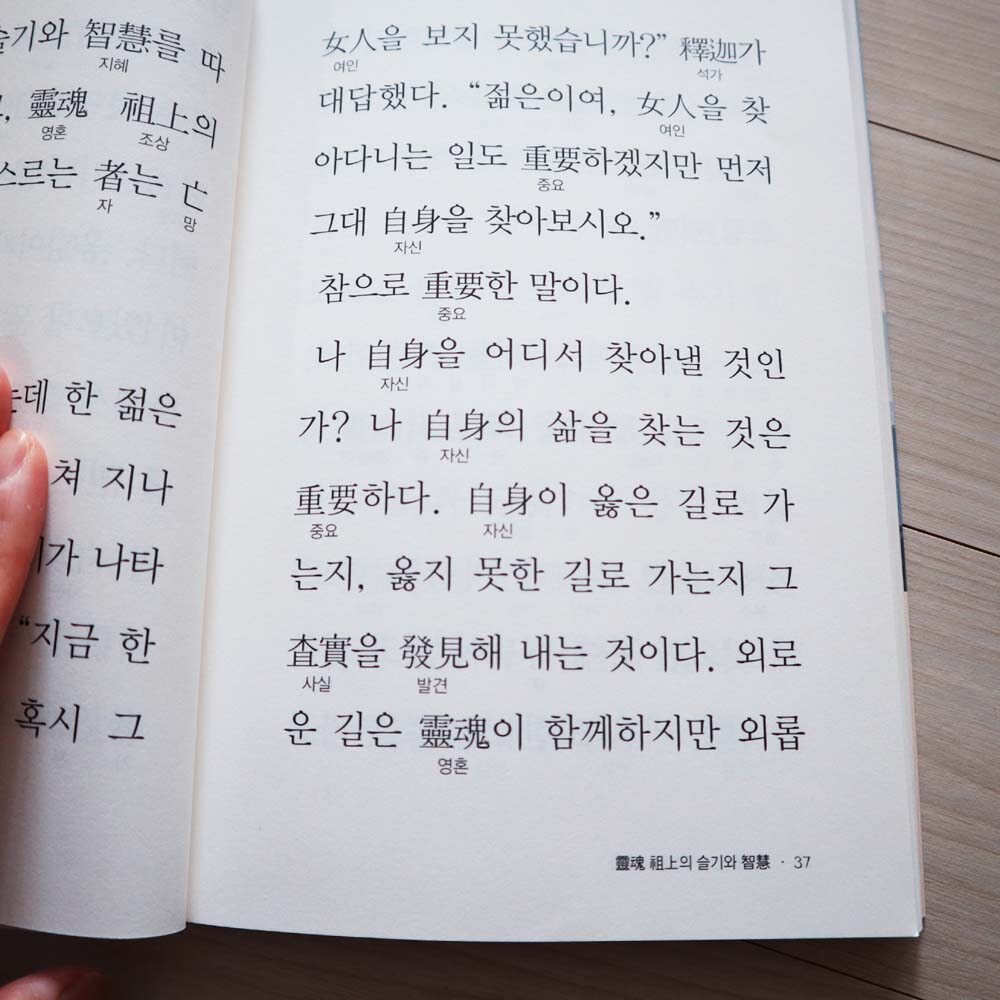 슬기와 智慧를 따
지혜
靈魂 祖上의
영혼 조상
스르는 者는 亡
자 망
는데 한 젊은
쳐 지나
가 나타
“지금 한
혹시 그
女人을 보지 못했습니까?” 釋迦가
여인 석가
대답했다. “젊은이여, 女人을 찾
여인
아다니는 일도 重要하겠지만 먼저
중요
그대 自身을 찾아보시오.”
자신
참으로 重要한 말이다.
중요
나 自身을 어디서 찾아낼 것인
자신
가? 나 自身의 삶을 찾는 것은
자신
重要하다. 自身이 옳은 길로 가
중요 자신
는지, 옳지 못한 길로 가는지 그
査實을 發見해 내는 것이다. 외로
사실 발견
운 길은 靈魂이 함께하지만 외롭
영혼
靈魂 祖上의 슬기와 智慧 · 37